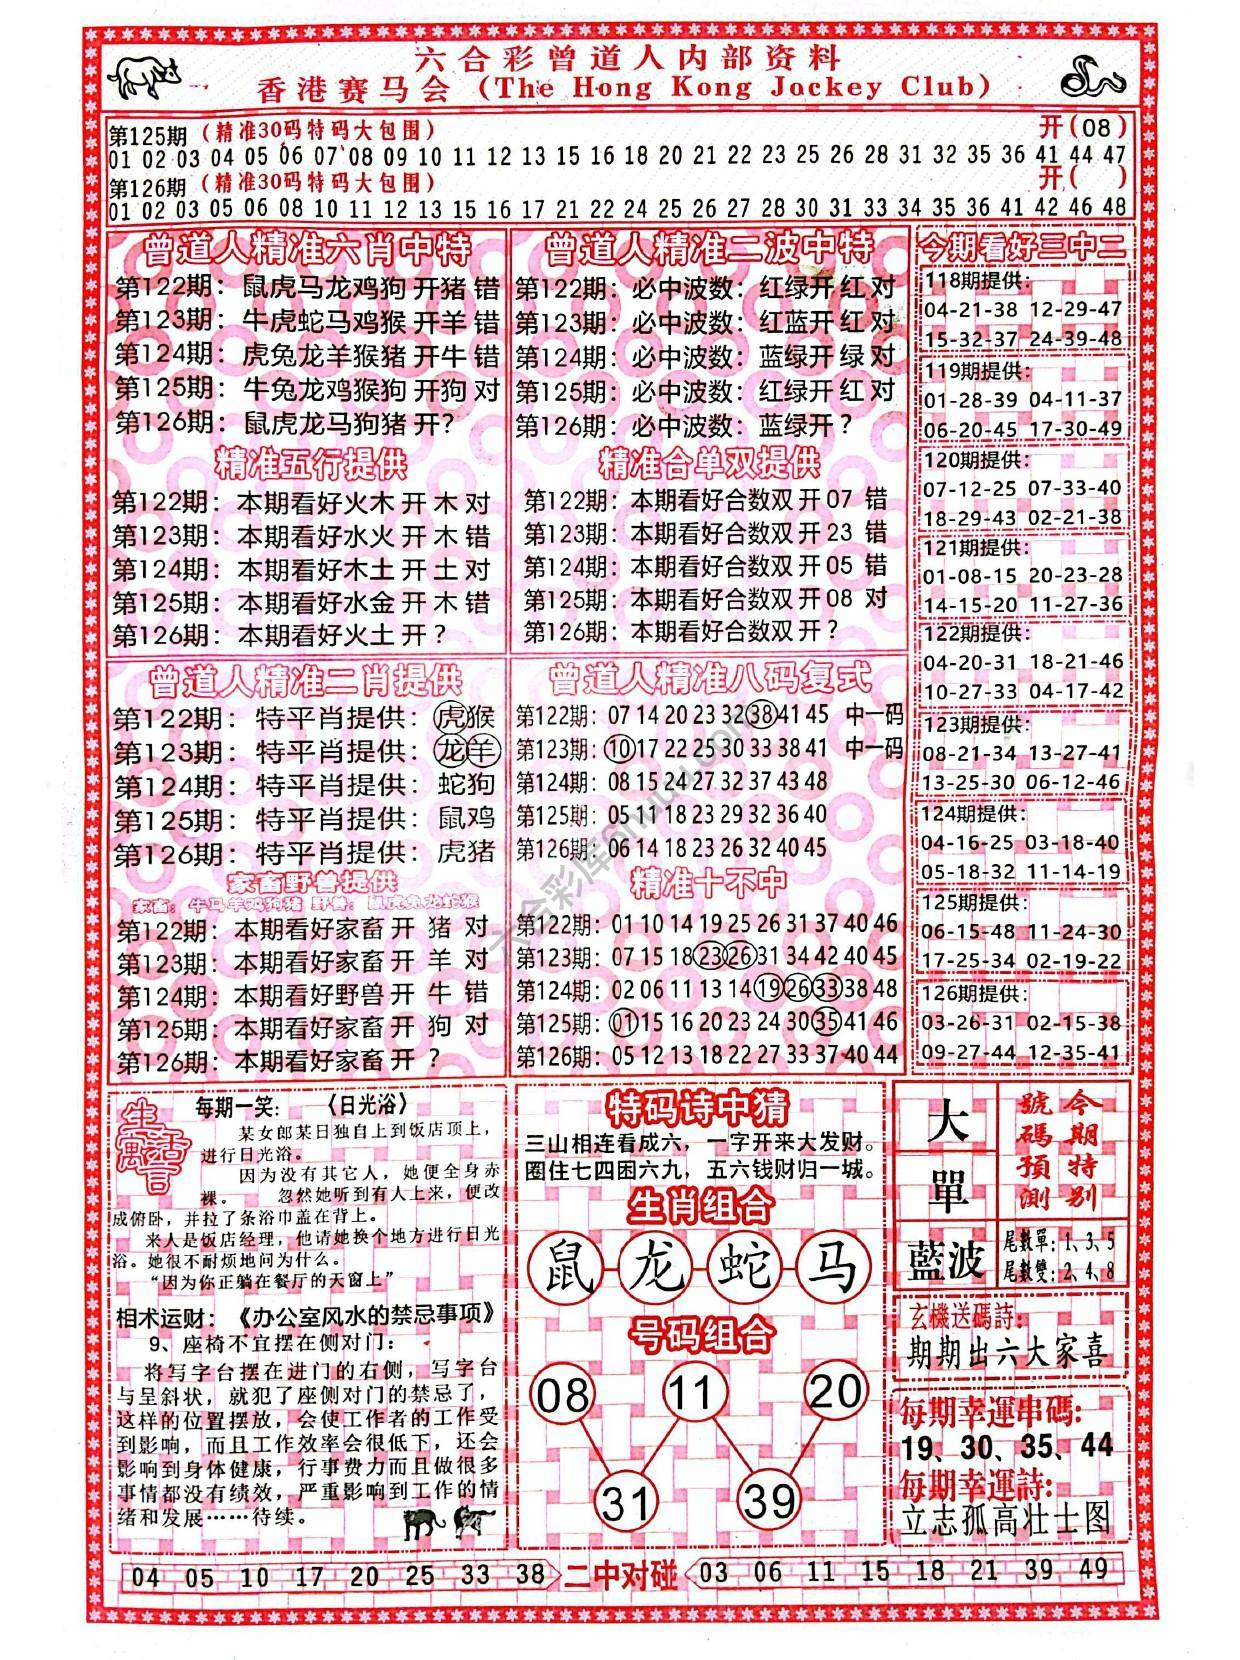 六合彩曾道人内部资料
香港赛马会（The Hong Kong Jockey Club）
第125期（精准30码特码大包围） 开(08)
01 02 03 04 05 06 07 08 09 10 11 12 13 15 16 18 20 21 22 23 25 26 28 31 32 35 36 41 44 47
第126期（精准30码特码大包围） 开( )
01 02 03 05 06 08 10 11 12 13 15 16 17 21 22 24 25 26 27 28 30 31 33 34 35 36 41 42 46 48
曾道人精准六肖中特
第122期：鼠虎马龙鸡狗开猪错
第123期：牛虎蛇马鸡猴开羊错
第124期：虎兔龙羊猴猪开牛错
第125期：牛兔龙鸡猴狗开狗对
第126期：鼠虎龙马狗猪开？
精准五行提供
第122期：本期看好火木开木对
第123期：本期看好水火开木错
第124期：本期看好木土开土对
第125期：本期看好水金开木错
第126期：本期看好火土开？
曾道人精准二波中特
第122期：必中波数：红绿开红对
第123期：必中波数：红蓝开红对
第124期：必中波数：蓝绿开绿对
第125期：必中波数：红绿开红对
第126期：必中波数：蓝绿开？
精准合单双提供
第122期：本期看好合数双开07 错
第123期：本期看好合数双开23 错
第124期：本期看好合数双开05 错
第125期：本期看好合数双开08 对
第126期：本期看好合数双开？
今期看好三中二
118期提供：
04-21-38 12-29-47
15-32-37 24-39-48
119期提供：
01-28-39 04-11-37
06-20-45 17-30-49
120期提供：
07-12-25 07-33-40
18-29-43 02-21-38
121期提供：
01-08-15 20-23-28
14-15-20 11-27-36
122期提供：
04-20-31 18-21-46
10-27-33 04-17-42
123期提供：
08-21-34 13-27-41
13-25-30 06-12-46
124期提供：
04-16-25 03-18-40
05-18-32 11-14-19
125期提供：
06-15-48 11-24-30
17-25-34 02-19-22
126期提供：
03-26-31 02-15-38
09-27-44 12-35-41
曾道人精准二肖提供
第122期：特平肖提供：虎猴
第123期：特平肖提供：龙羊
第124期：特平肖提供：蛇狗
第125期：特平肖提供：鼠鸡
第126期：特平肖提供：虎猪
家畜野兽提供
家畜：牛马羊鸡狗猪 野兽：鼠虎兔龙蛇猴
第122期：本期看好家畜开 猪 对
第123期：本期看好家畜开 羊 对
第124期：本期看好野兽开 牛 错
第125期：本期看好家畜开 狗 对
第126期：本期看好家畜开 ？
曾道人精准八码复式
第122期：07 14 20 23 32 38 41 45 中一码
第123期：10 17 22 25 30 33 38 41 中一码
第124期：08 15 24 27 32 37 43 48
第125期：05 11 18 23 29 32 36 40
第126期：06 14 18 23 26 32 40 45
精准十不中
第122期：01 10 14 19 25 26 31 37 40 46
第123期：07 15 18 23 26 31 34 42 40 45
第124期：02 06 11 13 14 19 26 33 38 48
第125期：01 15 16 20 23 24 30 35 41 46
第126期：05 12 13 18 22 27 33 37 40 44
生活寓言
每期一笑： 〈日光浴〉
某女郎某日独自上到饭店顶上，
进行日光浴。
因为没有其它人，她便全身赤
裸。 忽然她听到有人上来，便改
成俯卧，并拉了条浴巾盖在背上。
来人是饭店经理，他请她换个地方进行日光
浴。她很不耐烦地问为什么。
“因为你正躺在餐厅的天窗上”
相术运财：《办公室风水的禁忌事项》
9、座椅不宜摆在侧对门：
将写字台摆在进门的右侧，写字台
与呈斜状，就犯了座侧对门的禁忌了，
这样的位置摆放，会使工作者的工作受
到影响，而且工作效率会很低下，还会
影响到身体健康，行事费力而且做很多
事情都没有绩效，严重影响到工作的情
绪和发展……待续。
特码诗中猜
三山相连看成六，一字开来大发财。
圈住七四困六九，五六钱财归一城。
生肖组合
鼠 龙 蛇 马
号码组合
08 11 20
31 39
今期特别
號碼預測
大
單
藍波
尾數單：1、3、5
尾數雙：2、4、8
玄機送碼詩：
期期出六大家喜
每期幸運串碼：
19、30、35、44
每期幸運詩：
立志孤高壮士图
04 05 10 17 20 25 33 38 二中对碰 03 06 11 15 18 21 39 49